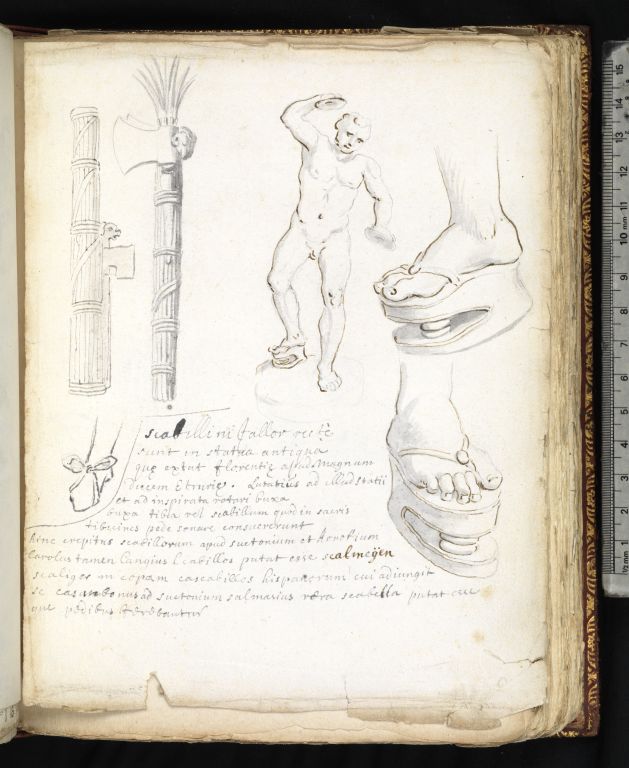 scabilli ni fallor recte
sunt in statua antiqua
quę extat florentię apud Magnum
Ducem Etrurię. Lutatius ad illud statii
et ad inspirata rotari buxa
buxa tibia vel scabillum quod in sacris
tibicines pede sonare consueverunt
hinc crepitus scabillorum apud suetonium et Arnobium
Carolus tamen Langius scabillos putat esse scalmeyen
scaliger in copam cascabillos hispanorum cui adiungit
se casaubonus ad suetonium salmasius vera scabella putat esse
que pedibus